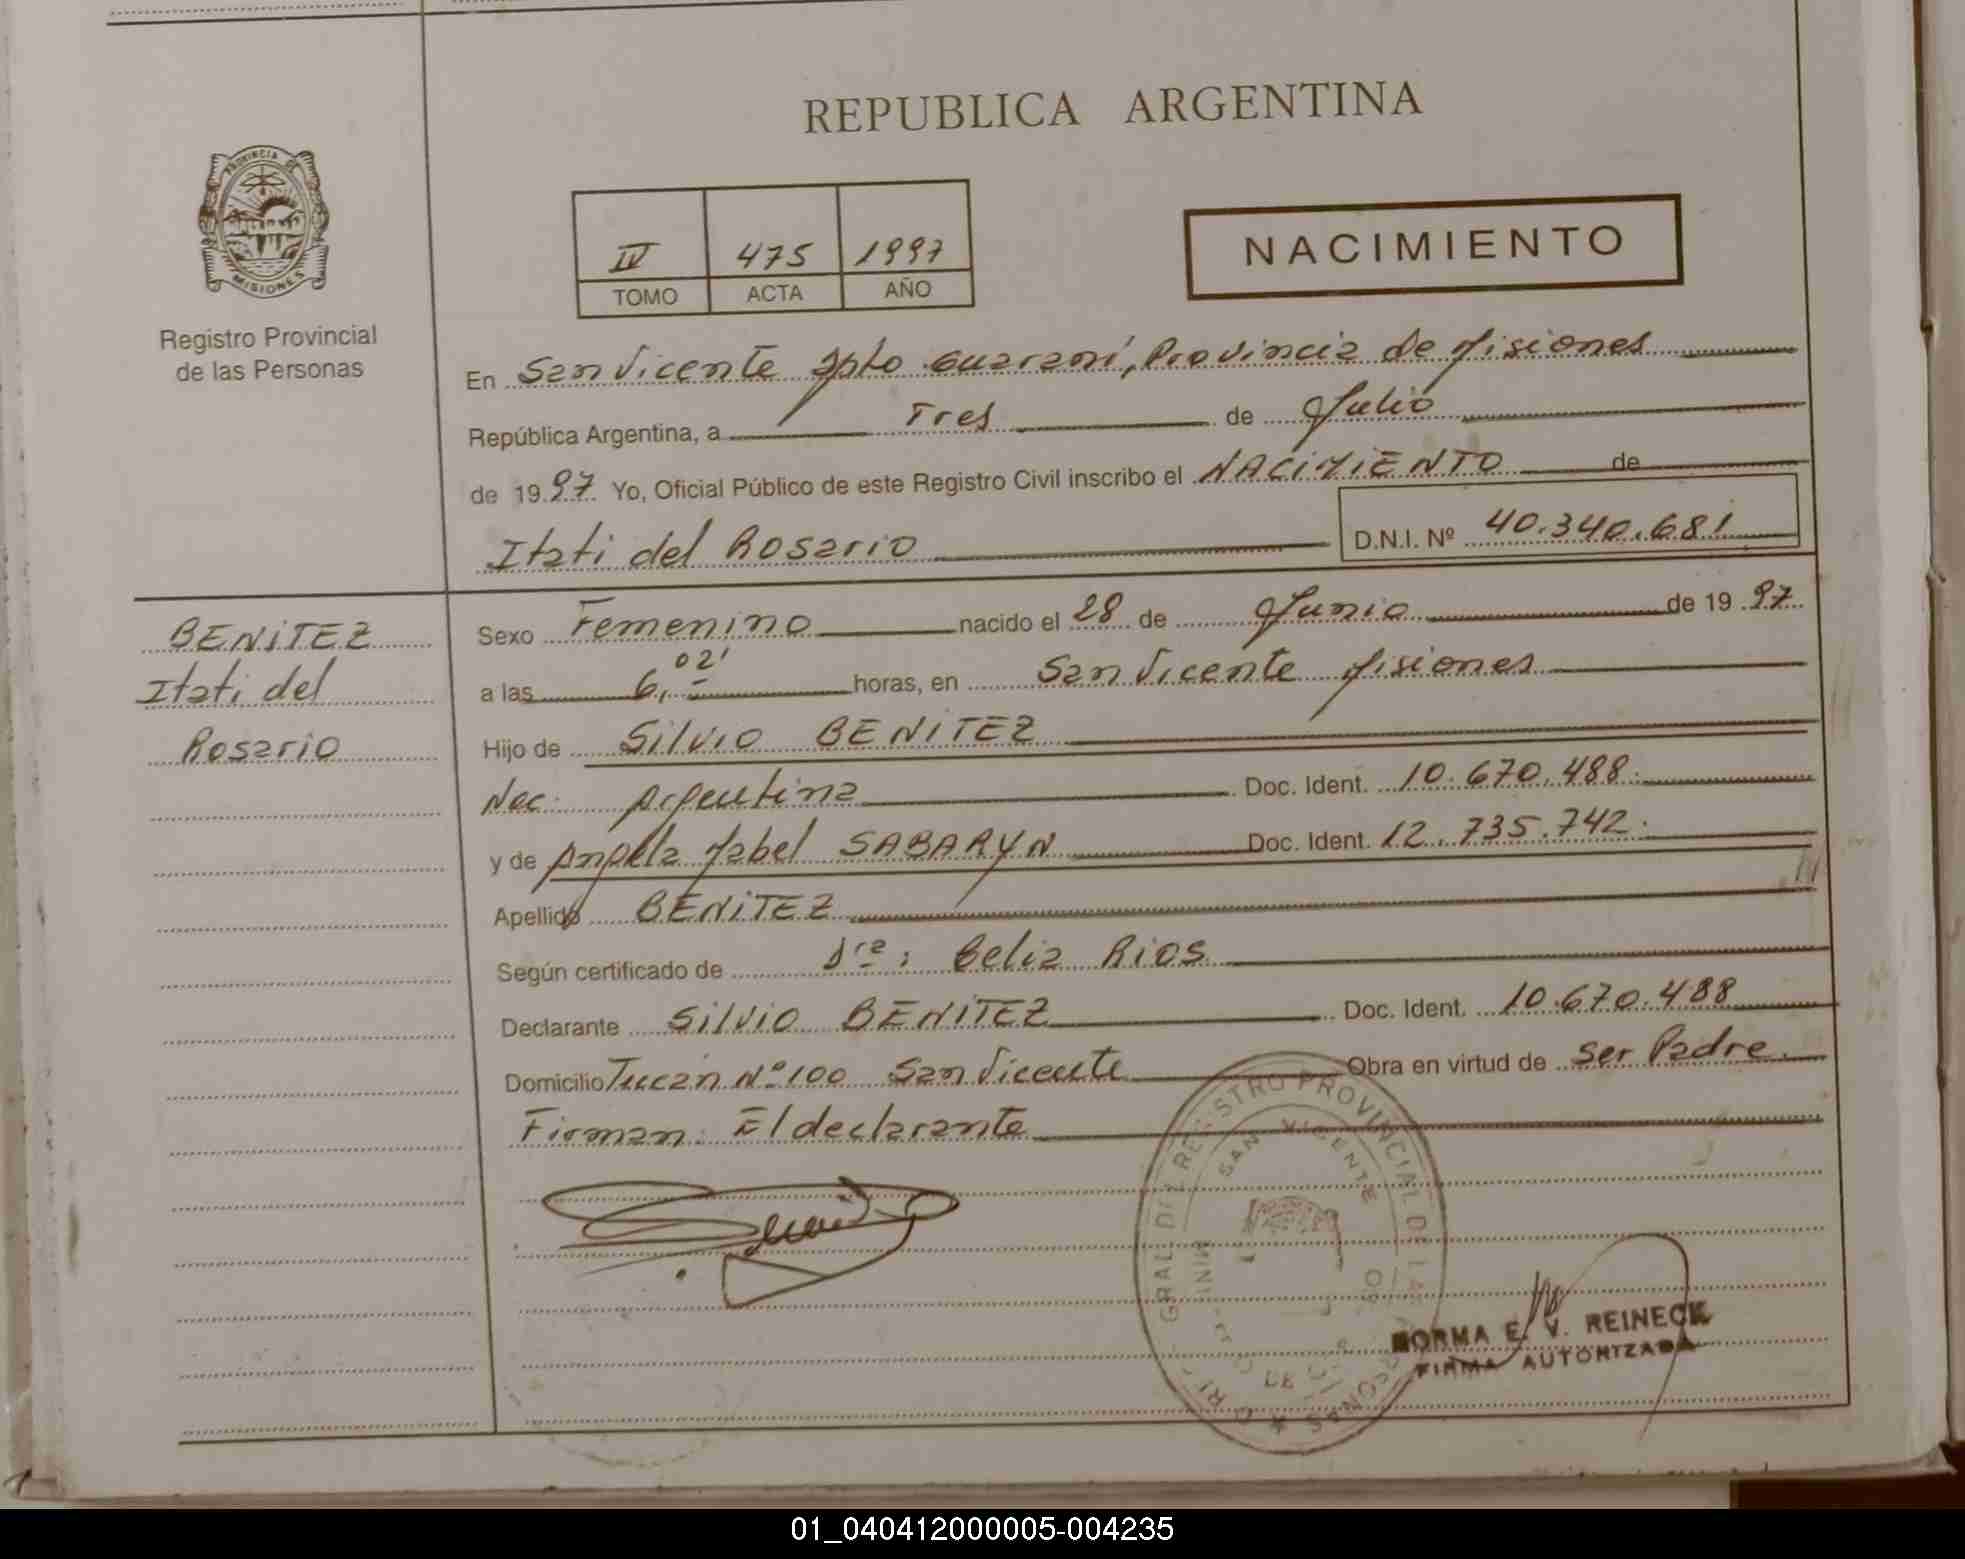 REPUBLICA ARGENTINA
PROVINCIA DE
MISIONES
Registro Provincial
de las Personas
IV 475 1997
TOMO ACTA AÑO
NACIMIENTO
En San Vicente Dpto Guaraní, Provincia de Misiones
República Argentina, a Tres de Julio
de 1997 Yo, Oficial Público de este Registro Civil inscribo el NACIMIENTO de
Itati del Rosario D.N.I. Nº 40.340.681
BENITEZ
Itati del
Rosario
Sexo Femenino nacido el 28 de Junio de 1997
a las 6,02' horas, en San Vicente Misiones
Hijo de Silvio BENITEZ
Nac: Argentina Doc. Ident. 10.670.488.
y de Angela Mabel SABARYN Doc. Ident. 12.735.742.
Apellido BENITEZ
Según certificado de Dra: Belia Rios
Declarante Silvio BENITEZ Doc. Ident. 10.670.488
Domicilio Tucán Nº 100 San Vicente Obra en virtud de ser Padre.
Firman: El declarante
GRAL DEL REGISTRO PROVINCIAL DE LAS PERSONAS
SAN VICENTE
NORMA E. V. REINECK
FIRMA AUTORIZADA
01_040412000005-004235